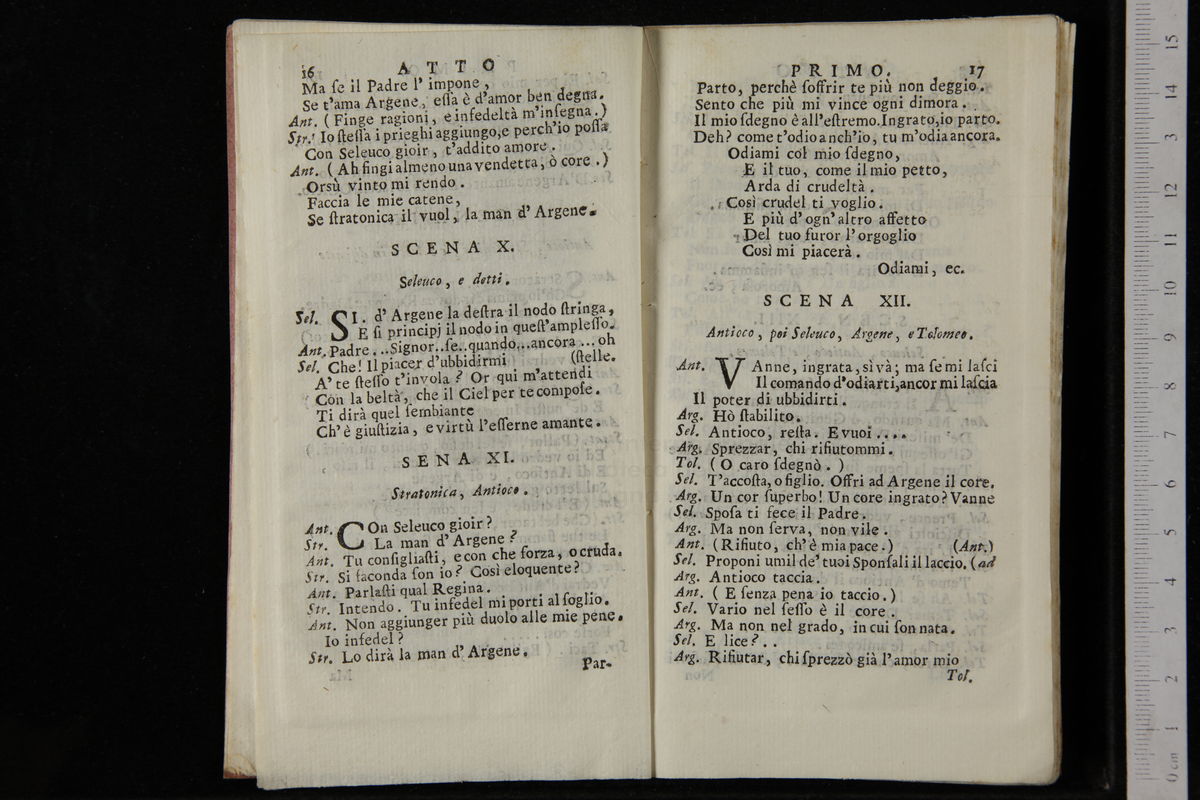 16 ATTO
Ma ſe il Padre l' impone,
Se t'ama Argene, eſſa è d'amor ben degna.
Ant. ( Finge ragioni, e infedeltà m'inſegna.)
Str. Io ſteſſa i prieghi aggiungo, e perch'io poſſa
Con Seleuco gioir, t'addito amore.
Ant. ( Ah fingi almeno una vendetta, ò core.)
Orsù vinto mi rendo.
Faccia le mie catene,
Se ſtratonica il vuol, la man d' Argene.
SCENA X.
Seleuco, e detti.
Sel. SI. d' Argene la deſtra il nodo ſtringa,
E ſi principj il nodo in queſt'ampleſſo.
Ant. Padre...Signor..ſe..quando...ancora ... oh
Sel. Che! Il piacer d'ubbidirmi (ſtelle.
A' te ſteſſo t'invola? Or qui m'attendi
Con la beltà, che il Ciel per te compoſe.
Ti dirà quel ſembiante
Ch' è giuſtizia, e virtù l'eſſerne amante.
SENA XI.
Stratonica, Antioco.
Ant. COn Seleuco gioir?
Str. La man d' Argene?
Ant. Tu conſigliaſti, e con che forza, o cruda.
Str. Si faconda ſon io? Così eloquente?
Ant. Parlaſti qual Regina.
Str. Intendo. Tu infedel mi porti al ſoglio.
Ant. Non aggiunger più duolo alle mie pene.
Io infedel?
Str. Lo dirà la man d' Argene.
Par-
PRIMO. 17
Parto, perchè ſoffrir te più non deggio.
Sento che più mi vince ogni dimora.
Il mio ſdegno è all'eſtremo. Ingrato, io parto.
Deh? come t'odio anch'io, tu m'odia ancora.
Odiami col mio ſdegno,
E il tuo, come il mio petto,
Arda di crudeltà.
Così crudel ti voglio.
E più d' ogn' altro affetto
Del tuo furor l' orgoglio
Così mi piacerà.
Odiami, ec.
SCENA XII.
Antioco, poi Seleuco, Argene, e Tolomeo.
Ant. VAnne, ingrata, sì và; ma ſe mi laſci
Il comando d'odiarti, ancor mi laſcia
Il poter di ubbidirti.
Arg. Hò ſtabilito.
Sel. Antioco, reſta. E vuoi....
Arg. Sprezzar, chi rifiutommi.
Tol. ( O caro ſdegnò. )
Sel. T'accoſta, o figlio. Offri ad Argene il core.
Arg. Un cor ſuperbo! Un core ingrato? Vanne
Sel. Spoſa ti fece il Padre.
Arg. Ma non ſerva, non vile.
Ant. (Rifiuto, ch' è mia pace.) (Ant.)
Sel. Proponi umil de' tuoi Sponſali il laccio. (ad
Arg. Antioco taccia.
Ant. ( E ſenza pena io taccio.)
Sel. Vario nel ſeſſo è il core.
Arg. Ma non nel grado, in cui ſon nata.
Sel. E lice?..
Arg. Rifiutar, chi ſprezzò già l' amor mio
Tol.